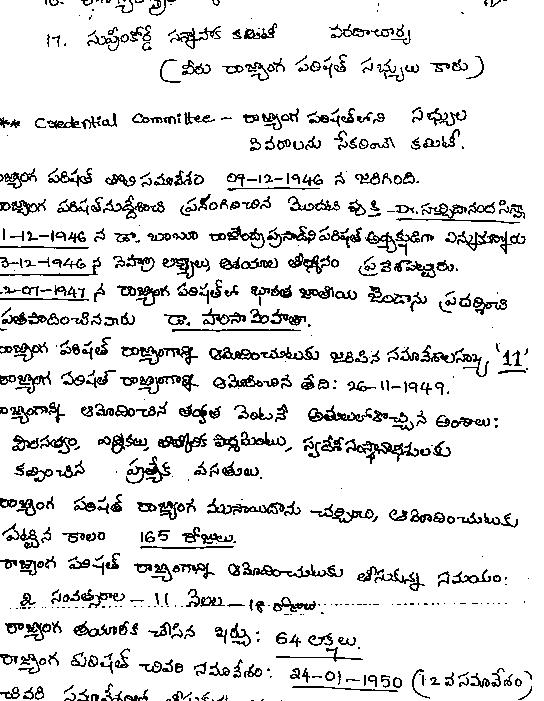 17. సుప్రీంకోర్టు సన్నాహక కమిటీ వరదాచార్య
(వీరు రాజ్యాంగ పరిషత్ సభ్యులు కారు)
** Credential Committee - రాజ్యాంగ పరిషత్‌లోని సభ్యుల
వివరాలను సేకరించే కమిటీ.
పరిషత్ తొలి సమావేశం 09-12-1946 న జరిగింది.
పరిషత్‌నుద్దేశించి ప్రసంగించిన మొదటి వ్యక్తి - Dr. సచ్చిదానంద సిన్హా
1-12-1946 న డా. బాబూ రాజేంద్రప్రసాద్‌ని పరిషత్ అధ్యక్షుడిగా ఎన్నుకున్నారు
3-12-1946 న నెహ్రూ లక్ష్యాలు, ఆశయాల తీర్మానం ప్రవేశపెట్టారు.
2-07-1947 న రాజ్యాంగ పరిషత్‌లో భారత జాతీయ జెండాను ప్రదర్శించి
ప్రతిపాదించినవారు డా. హంసా మెహతా.
పరిషత్ రాజ్యాంగాన్ని ఆమోదించుటకు జరిపిన సమావేశాల సంఖ్య '11'
పరిషత్ రాజ్యాంగాన్ని ఆమోదించిన తేది: 26-11-1949.
ఆమోదించిన తర్వాత వెంటనే అమలులోకొచ్చిన అంశాలు:
పౌరసత్వం, ఎన్నికలు, తాత్కాలిక పార్లమెంటు, స్వదేశీ సంస్థానాధీశులకు
కల్పించిన ప్రత్యేక వసతులు.
పరిషత్ రాజ్యాంగ ముసాయిదాను చర్చించి, ఆమోదించుటకు
పట్టిన కాలం 165 రోజులు.
రాజ్యాంగ పరిషత్ రాజ్యాంగాన్ని ఆమోదించుటకు తీసుకున్న సమయం:
2 సంవత్సరాల - 11 నెలల - 18 రోజులు.
రాజ్యాంగ తయారీకి చేసిన ఖర్చు: 64 లక్షలు.
రాజ్యాంగ పరిషత్ చివరి సమావేశం: 24-01-1950 (12వ సమావేశం)
చివరి